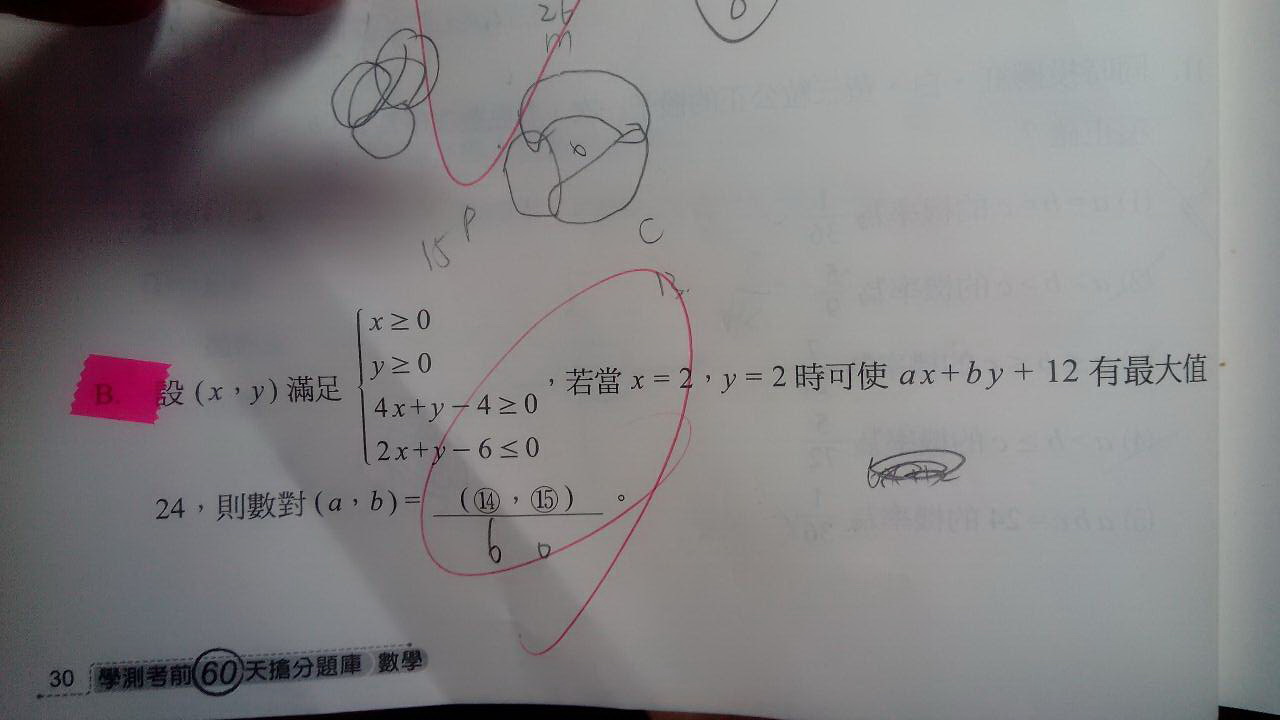 26
m
P
C
15
B. 設 (x，y) 滿足 { x ≥ 0
y ≥ 0
4x+y−4 ≥ 0
2x+y−6 ≤ 0 ，若當 x = 2，y = 2 時可使 ax+by+12 有最大值
24，則數對 (a，b) = (⑭，⑮)。
6 0
30 學測考前60天搶分題庫 數學